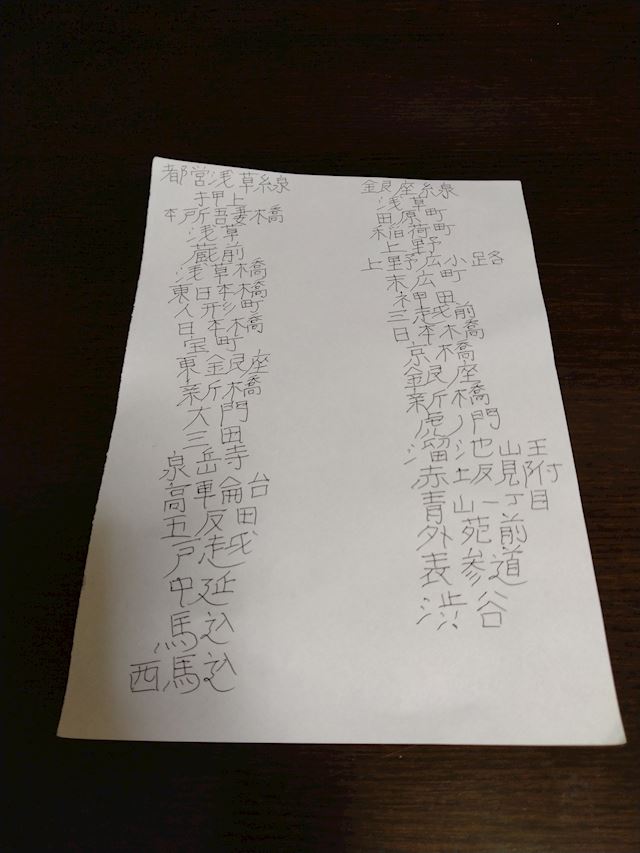 都営浅草線
押上
本所吾妻橋
浅草
蔵前
浅草橋
東日本橋
人形町
日本橋
宝町
東銀座
新橋
大門
三田
泉岳寺
高輪台
五反田
戸越
中延
馬込
西馬込
銀座線
浅草
田原町
稲荷町
上野
上野広小路
末広町
神田
三越前
日本橋
京橋
銀座
新橋
虎ノ門
溜池山王
赤坂見附
青山一丁目
外苑前
表参道
渋谷